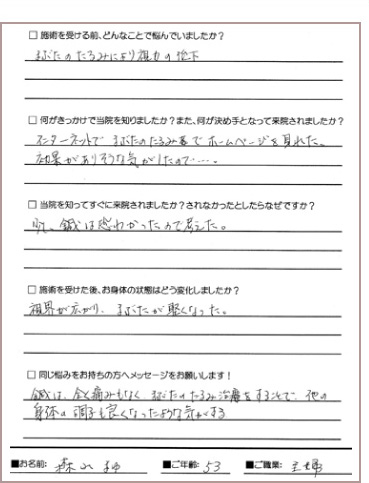 □ 施術を受ける前、どんなことで悩んでいましたか?
まぶたのたるみにより視力の低下
□ 何がきっかけで当院を知りましたか?また、何が決め手となって来院されましたか?
インターネットで まぶたのたるみ等で ホームページを見れた。
効果がありそうな気がしたので……。
□ 当院を知ってすぐに来院されましたか?されなかったとしたらなぜですか?
鍼は恐わかったので考えた。
□ 施術を受けた後、お身体の状態はどう変化しましたか?
視界が広がり、まぶたが軽くなった。
□ 同じ悩みをお持ちの方へメッセージをお願いします!
鍼は、全く痛みもなく まぶたのたるみ治療をすることで、他の
身体の調子も良くなったような気がする
■お名前: 森 ■ご年齢: 53 ■ご職業: 主婦